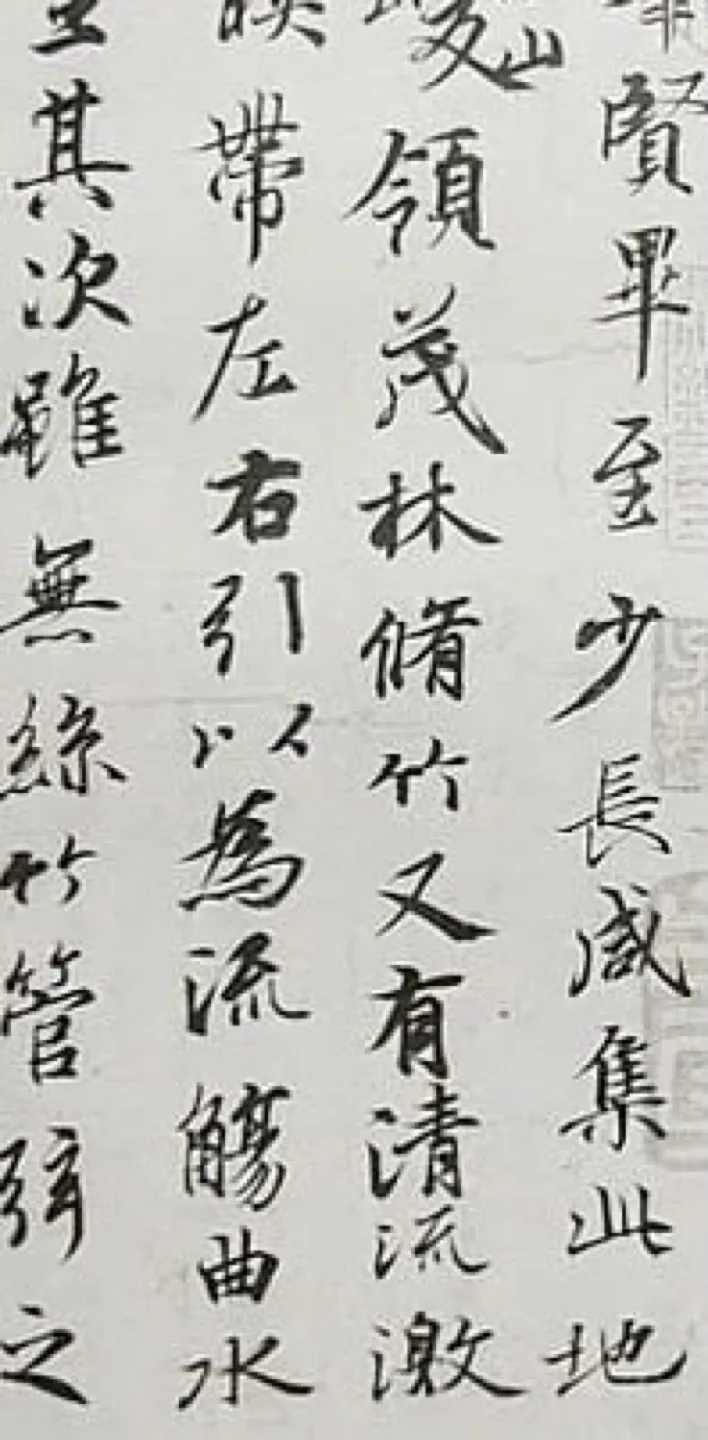 賢畢至少長咸集此地
峻領茂林脩竹又有清流激
映帶左右引以為流觴曲水
坐其次雖無絲竹管弦之